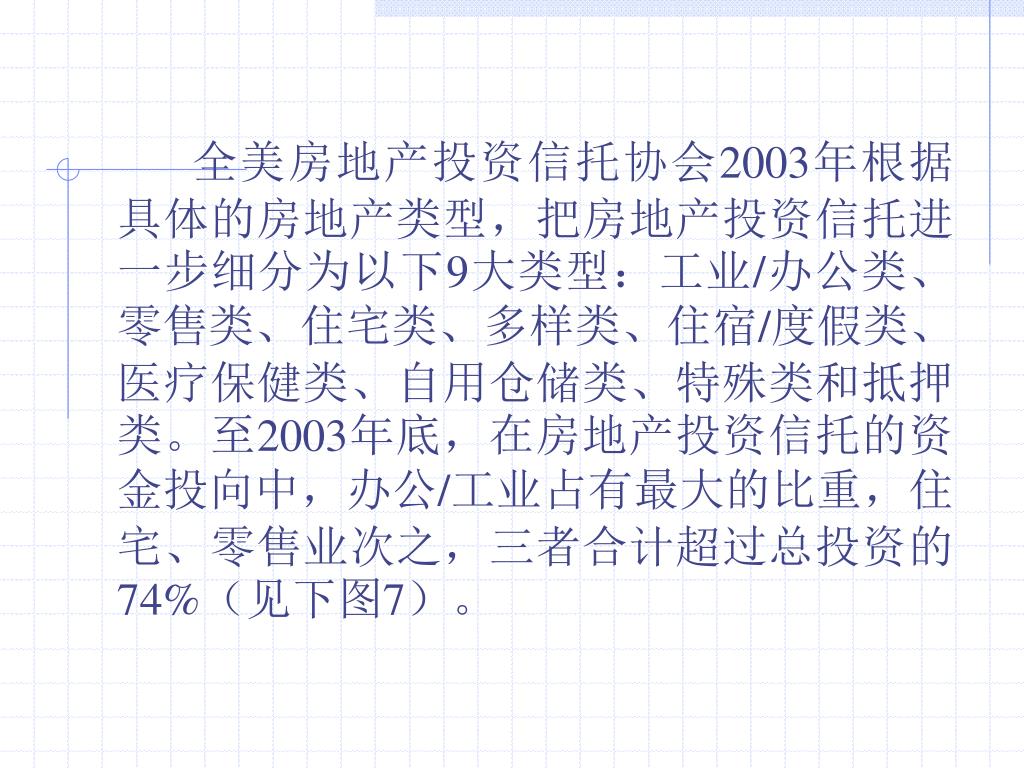 全美房地产投资信托协会2003年根据
具体的房地产类型，把房地产投资信托进
一步细分为以下9大类型：工业/办公类、
零售类、住宅类、多样类、住宿/度假类、
医疗保健类、自用仓储类、特殊类和抵押
类。至2003年底，在房地产投资信托的资
金投向中，办公/工业占有最大的比重，住
宅、零售业次之，三者合计超过总投资的
74%（见下图7）。